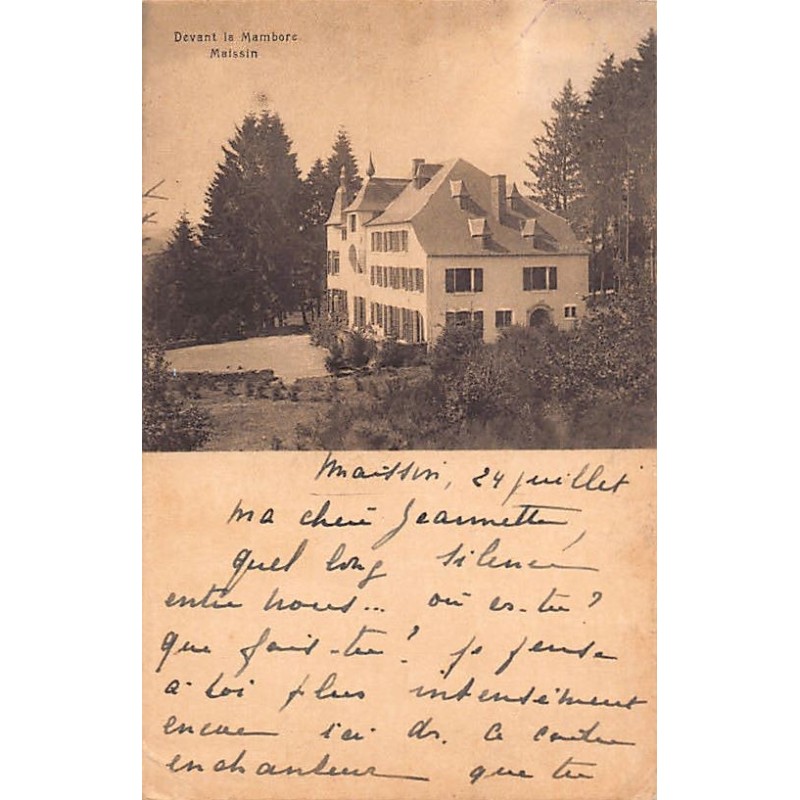 Devant la Mambore
Maissin
Maissin, 24 juillet
Ma chère Jeannette,
quel long silence
entre nous... où es-tu?
que fais-tu? je pense
à toi plus intensément
encore ici ds. ce centre
enchanteur que tu